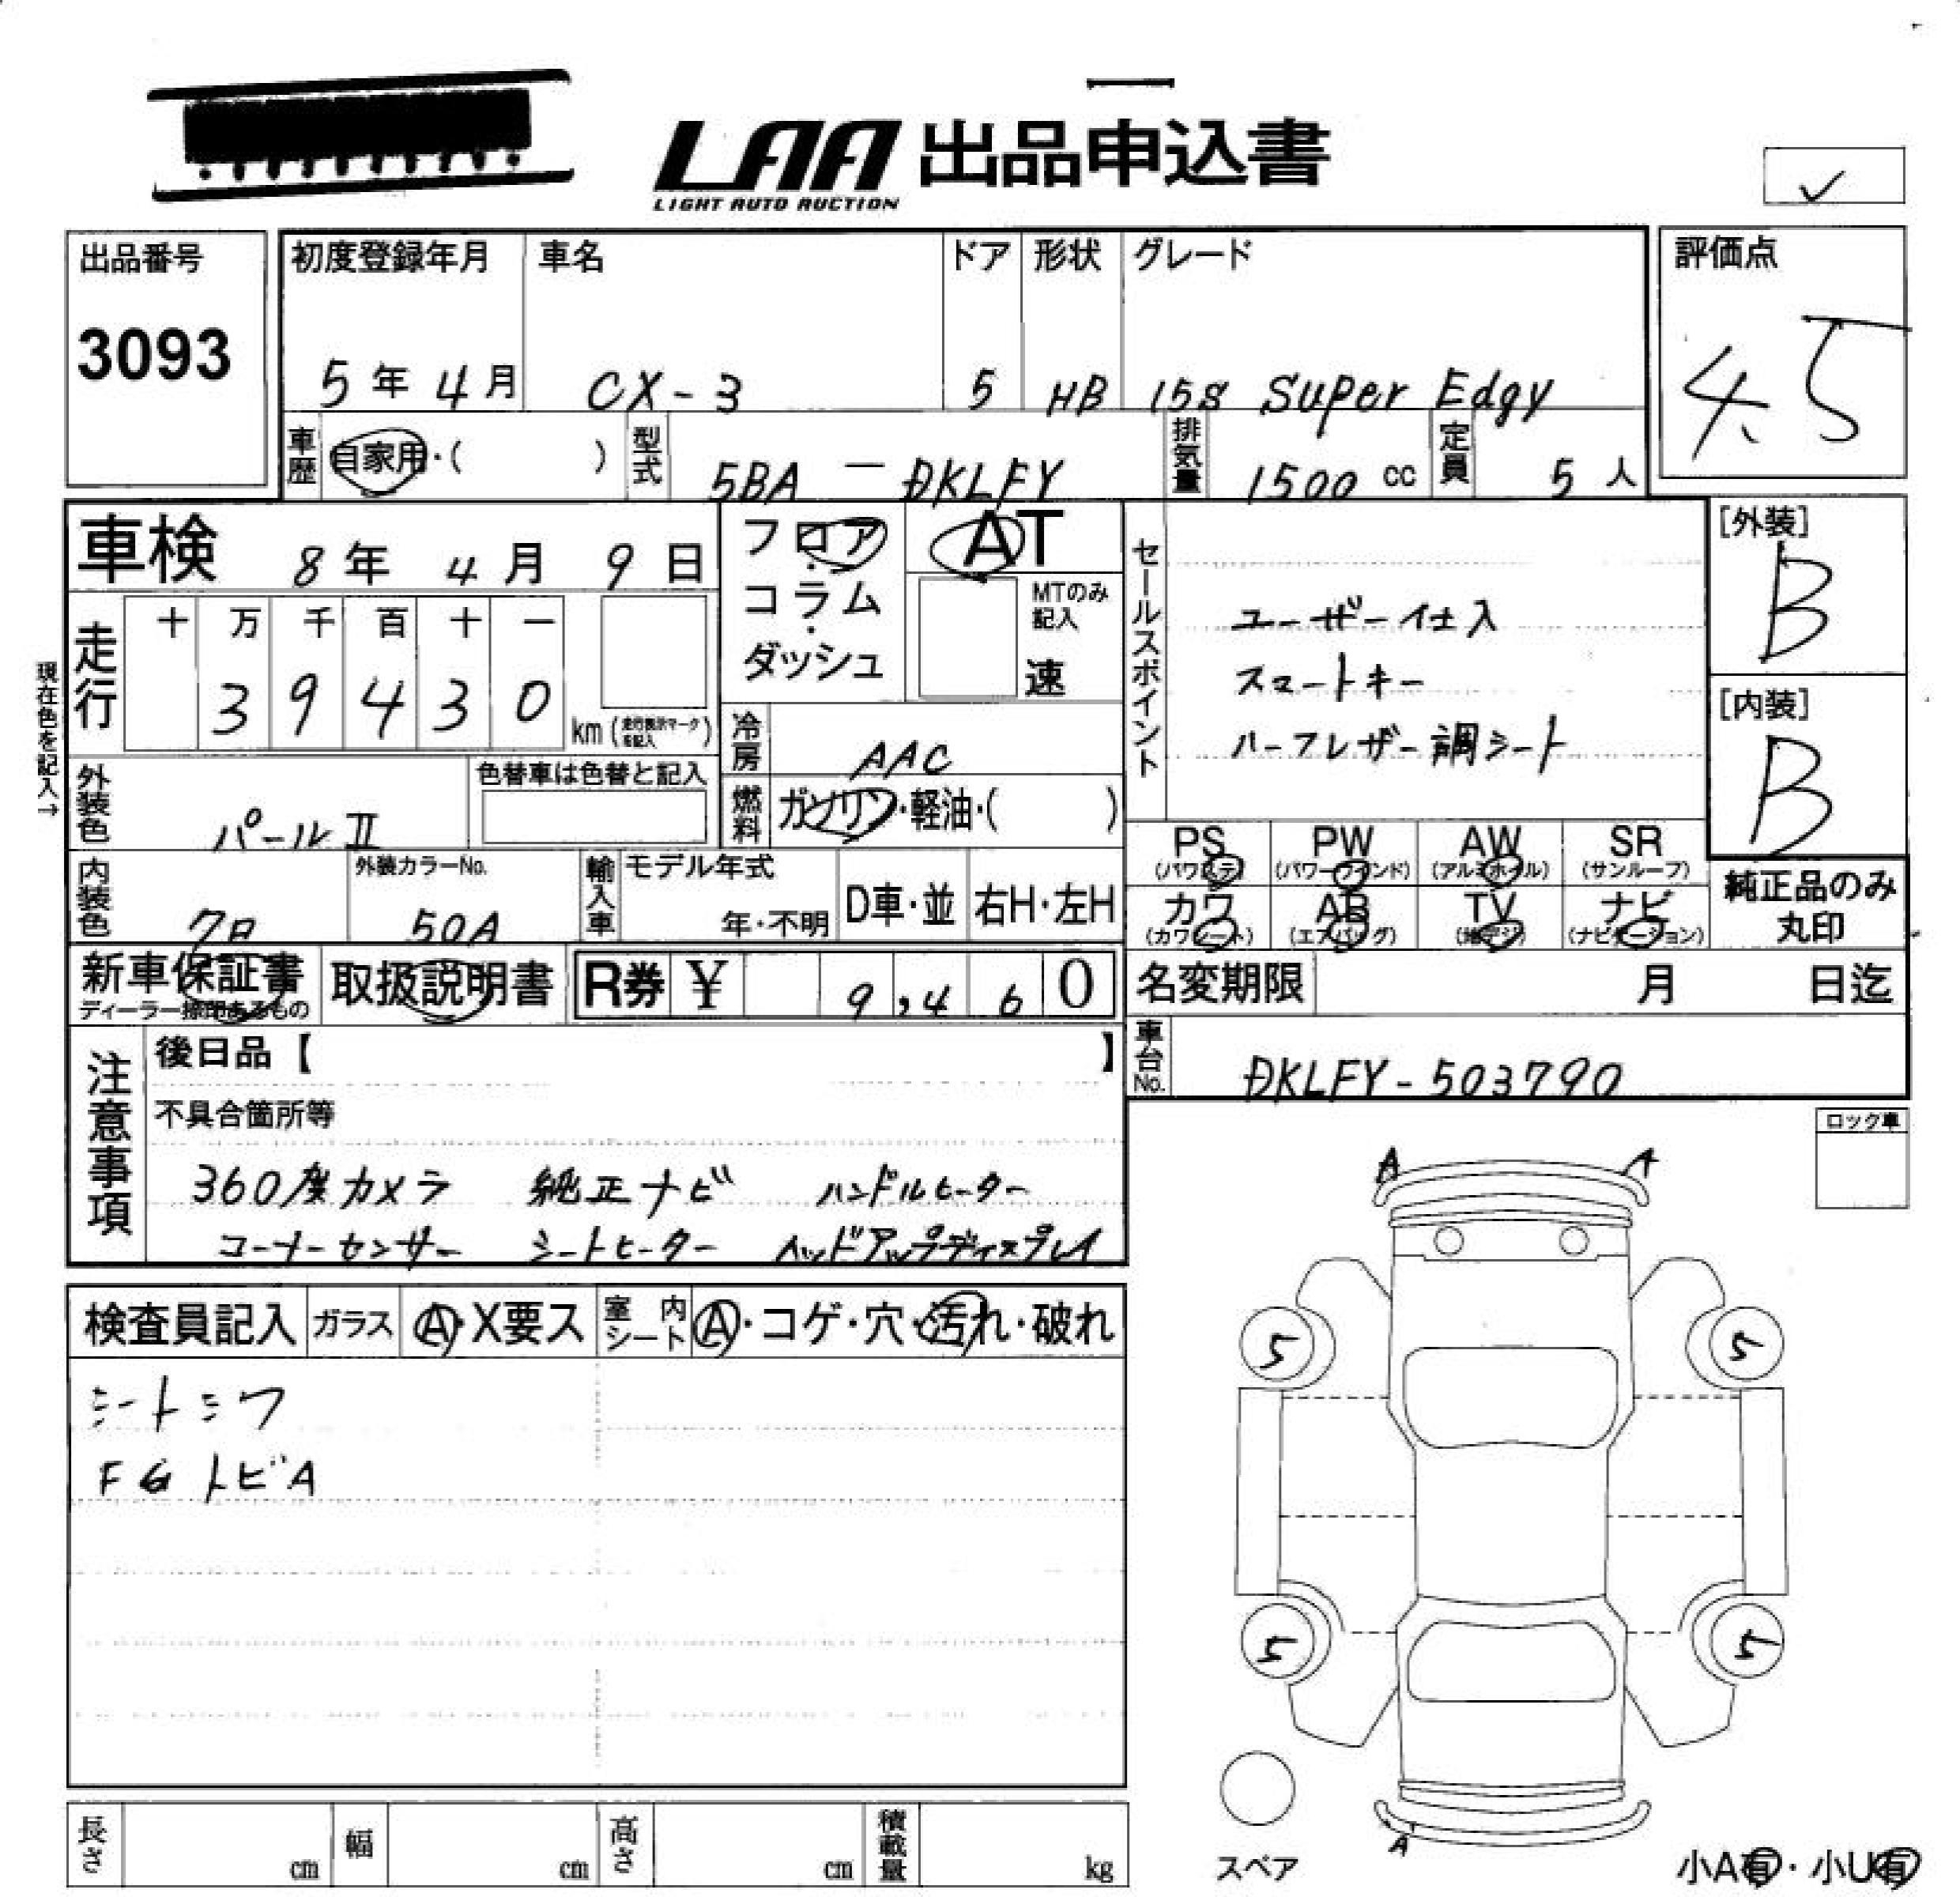 LAA 出品申込書
LIGHT AUTO AUCTION
出品番号
3093
初度登録年月 車名 ドア 形状 グレード
5年4月 CX-3 5 HB 15S Super Edgy
評価点
4.5
車歴 自家用・( ) 型式 5BA-DKLFY 排気量 1500cc 定員 5人
車検 8年4月9日
フロア・コラム・ダッシュ
AT
MTのみ記入
速
セールスポイント
ユーザー仕入
スマートキー
ハーフレザー調シート
[外装]
B
[内装]
B
現在色を記入→
走行 十 万 千 百 十 一
3 9 4 3 0 km (走行表示マークを記入)
冷房 AAC
燃料 ガソリン・軽油・( )
外装色 パールⅡ
色替車は色替と記入
内装色 クロ
外装カラーNo. 50A
輸入車 モデル年式 年・不明 D車・並 右H・左H
PS (パワステ) PW (パワーウインド) AW (アルミホイル) SR (サンルーフ)
カワ (カワシート) AB (エアバッグ) TV (地デジ) ナビ (ナビゲーション)
純正品のみ丸印
新車保証書 取扱説明書 R券 ¥ 9,460
名変期限 月 日迄
車台No. DKLFY-503790
注意事項
後日品【 】
不具合箇所等
360度カメラ 純正ナビ ハンドルヒーター
コーナーセンサー シートヒーター ヘッドアップディスプレイ
ロック車
検査員記入 ガラス A・X要ス 室内シート A・コゲ・穴・汚れ・破れ
シートシワ
FGトビA
A A
5 5
5 5
A
スペア
小A有・小U有
長さ cm 幅 cm 高さ cm 積載量 kg